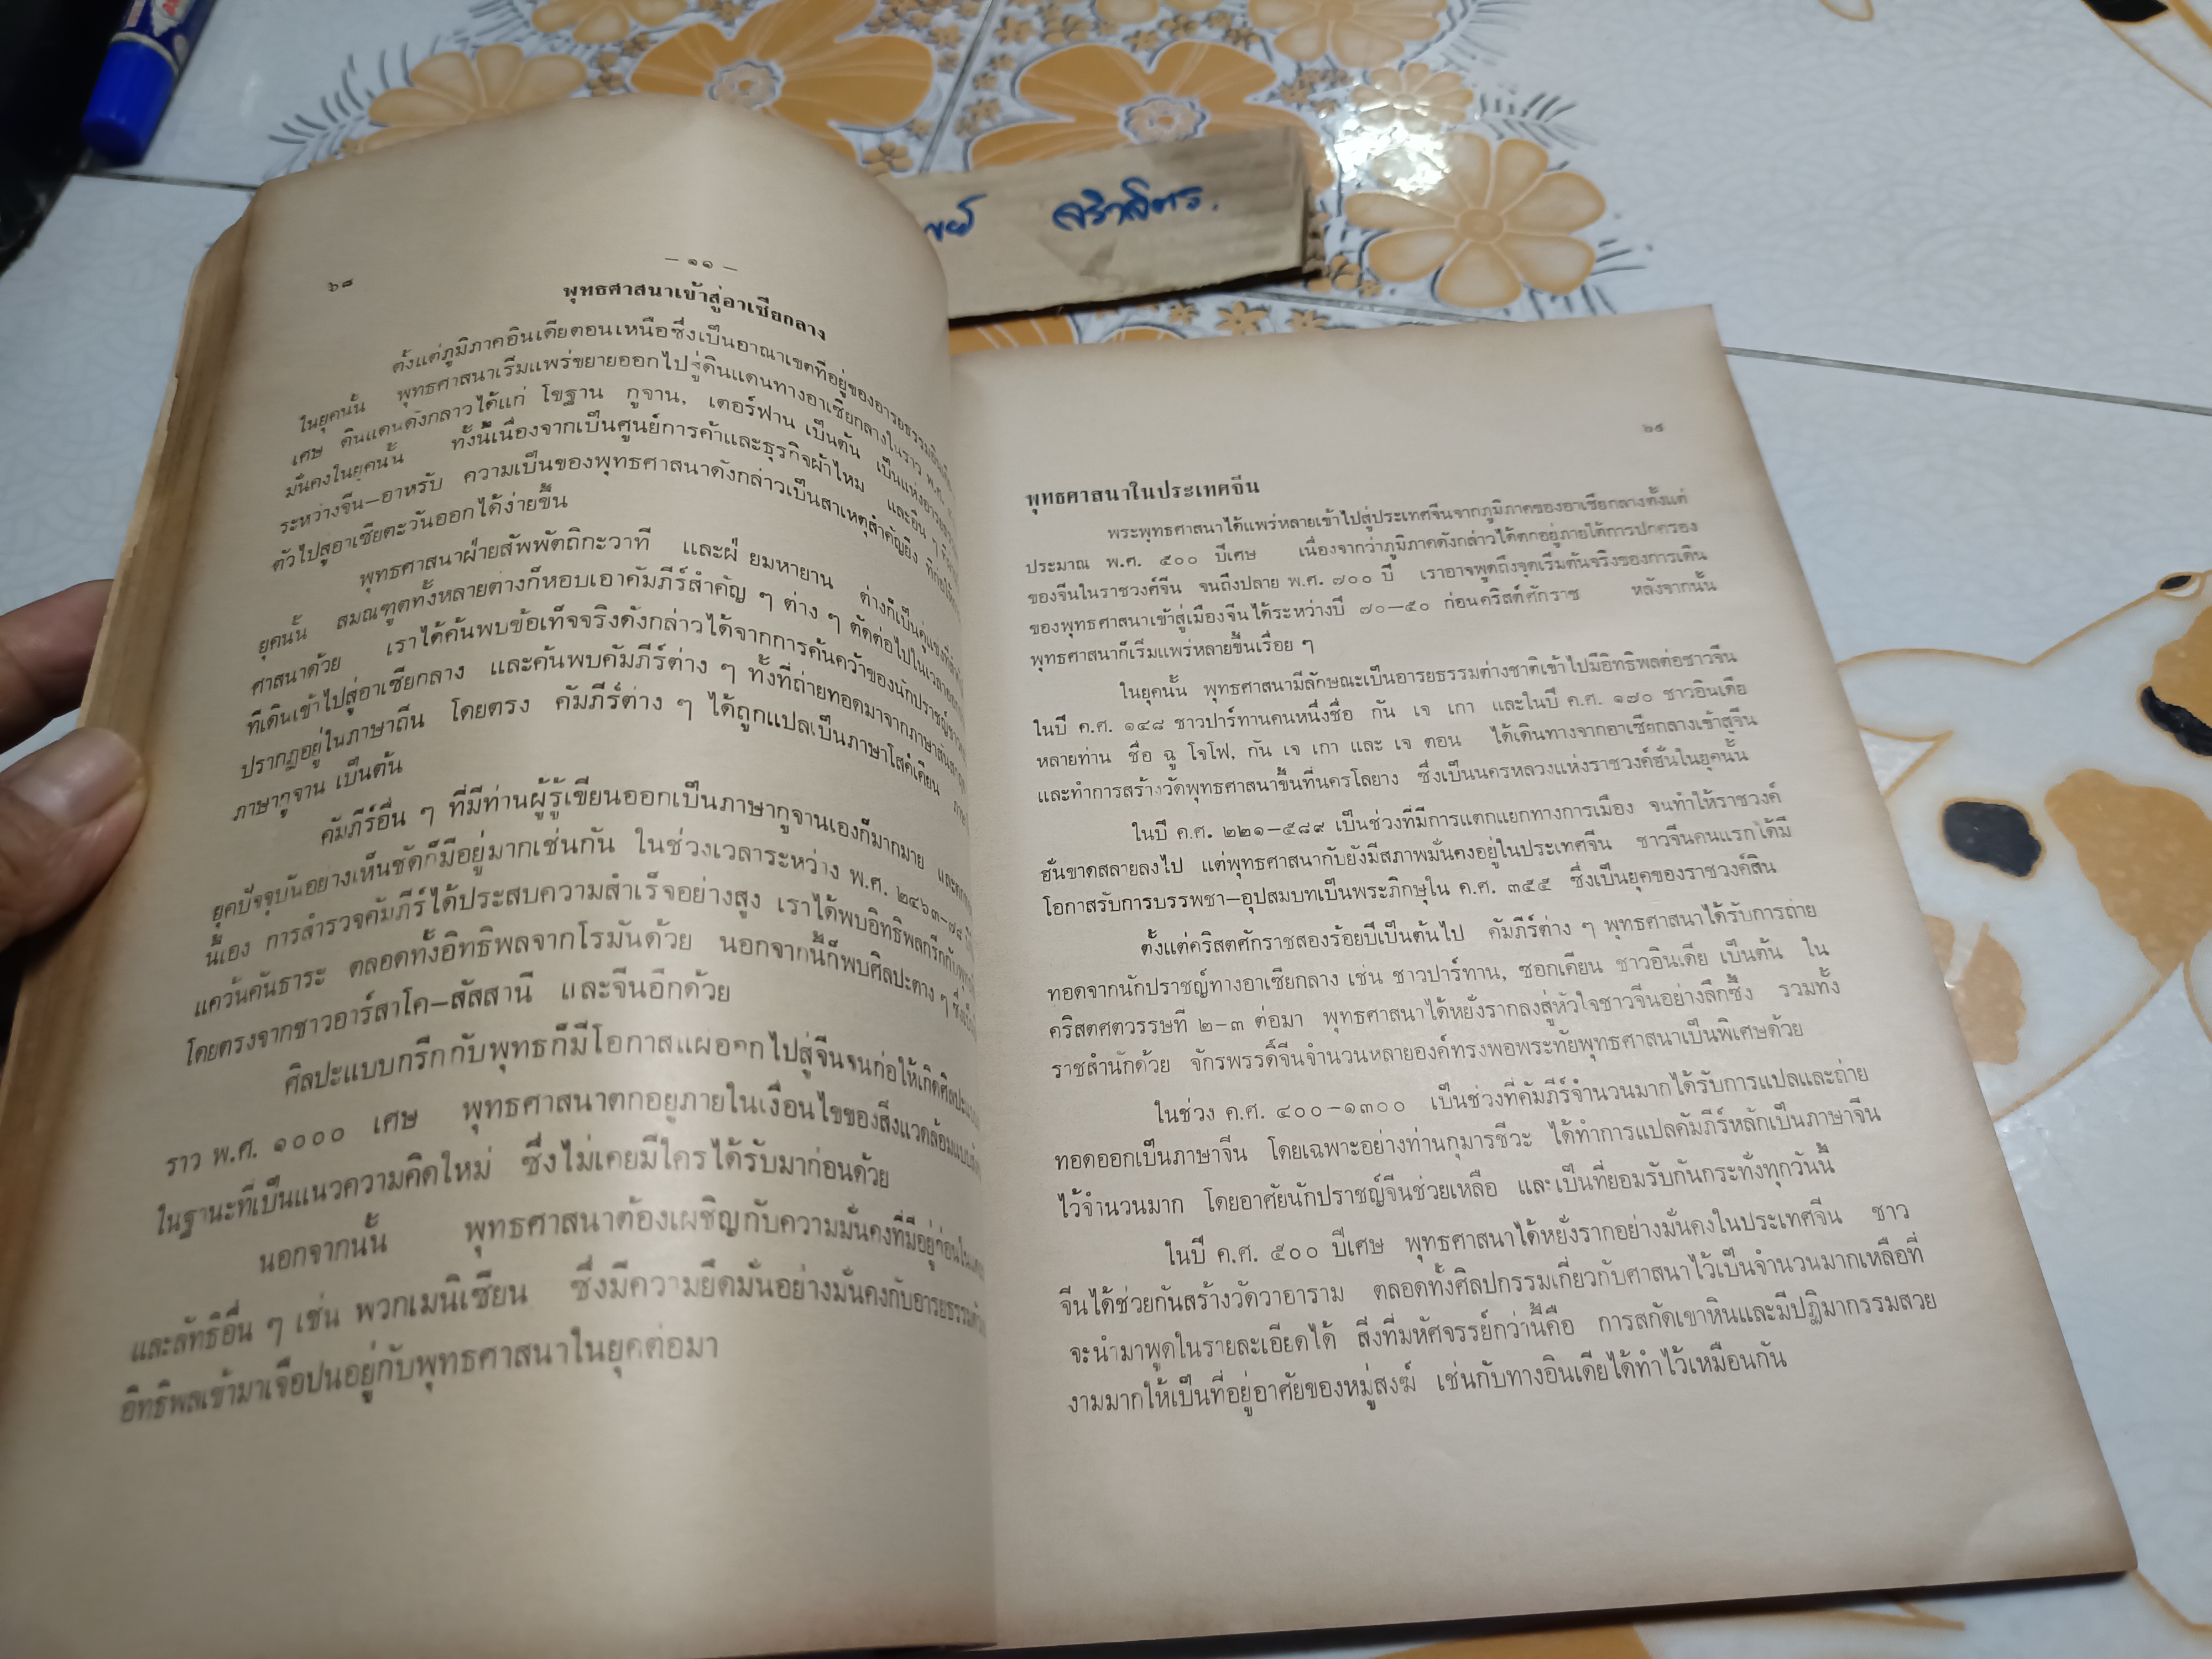 สริวลีตร.
๖๘
— ๑๑ —
พุทธศาสนาเข้าสู่อาเซียกลาง
ตั้งแต่ภูมิภาคอินเดียตอนเหนือซึ่งเป็นอาณาเขตที่อยู่ของอารยธรรม
ในยุคนั้น พุทธศาสนาเริ่มแพร่ขยายออกไปสู่ดินแดนทางอาเซียกลางในราว พ.ศ.
เศษ ดินแดนดังกล่าวได้แก่ โขฐาน กูจาน, เตอร์ฟาน เป็นต้น เป็นแห่งอารยธรรม
มั่นคงในยุคนั้น ทั้งนี้เนื่องจากเป็นศูนย์การค้าและธุรกิจผ้าไหม และอื่น ๆ
ระหว่างจีน–อาหรับ ความเป็นของพุทธศาสนาดังกล่าวเป็นสาเหตุสำคัญยิ่ง ที่ก่อให้
ตัวไปสู่อาเซียตะวันออกได้ง่ายขึ้น
พุทธศาสนาฝ่ายสัพพัตถิกะวาที และฝ่ ยมหายาน ต่างก็เป็นคู่แข่งที่สำคัญ
ยุคนั้น สมณฑูตทั้งหลายต่างก็หอบเอาคัมภีร์สำคัญ ๆ ต่าง ๆ ติดต่อไปในเวลา
ศาสนาด้วย เราได้ค้นพบข้อเท็จจริงดังกล่าวได้จากการค้นคว้าของนักปราชญ์
ที่เดินเข้าไปสู่อาเซียกลาง และค้นพบคัมภีร์ต่าง ๆ ทั้งที่ถ่ายทอดมาจากภาษา
ปรากฏอยู่ในภาษาถิ่น โดยตรง คัมภีร์ต่าง ๆ ได้ถูกแปลเป็นภาษาโสค์เดียน
ภาษากูจาน เป็นต้น
คัมภีร์อื่น ๆ ที่มีท่านผู้รู้เขียนออกเป็นภาษากูจานเองก็มากมาย และตกทอด
ยุคปัจจุบันอย่างเห็นชัดก็มีอยู่มากเช่นกัน ในช่วงเวลาระหว่าง พ.ศ. ๒๔๖๓–๗๘
นี้เอง การสำรวจคัมภีร์ได้ประสบความสำเร็จอย่างสูง เราได้พบอิทธิพลกรีกกับพุทธ
แคว้นคันธาระ ตลอดทั้งอิทธิพลจากโรมันด้วย นอกจากนี้ก็พบศิลปะต่าง ๆ
โดยตรงจากชาวอาร์สาโค–สัสสานี และจีนอีกด้วย
ศิลปะแบบกรีกกับพุทธก็มีโอกาสแผ่ออกไปสู่จีนจนก่อให้เกิดศิลปะ
ราว พ.ศ. ๑๐๐๐ เศษ พุทธศาสนาตกอยู่ภายในเงื่อนไขของสิ่งแวดล้อมแบบ
ในฐานะที่เป็นแนวความคิดใหม่ ซึ่งไม่เคยมีใครได้รับมาก่อนด้วย
นอกจากนั้น พุทธศาสนาต้องเผชิญกับความมั่นคงที่มีอยู่ก่อนใน
และลัทธิอื่น ๆ เช่น พวกเมนิเชียน ซึ่งมีความยึดมั่นอย่างมั่นคงกับอารยธรรม
อิทธิพลเข้ามาเจือปนอยู่กับพุทธศาสนาในยุคต่อมา
๖๙
พุทธศาสนาในประเทศจีน
พระพุทธศาสนาได้แพร่หลายเข้าไปสู่ประเทศจีนจากภูมิภาคของอาเซียกลางตั้งแต่
ประมาณ พ.ศ. ๕๐๐ ปีเศษ เนื่องจากว่าภูมิภาคดังกล่าวได้ตกอยู่ภายใต้การปกครอง
ของจีนในราชวงศ์จีน จนถึงปลาย พ.ศ. ๗๐๐ ปี เราอาจพูดถึงจุดเริ่มต้นจริงของการเดิน
ของพุทธศาสนาเข้าสู่เมืองจีนได้ระหว่างปี ๗๐–๕๐ ก่อนคริสต์ศักราช หลังจากนั้น
พุทธศาสนาก็เริ่มแพร่หลายขึ้นเรื่อย ๆ
ในยุคนั้น พุทธศาสนามีลักษณะเป็นอารยธรรมต่างชาติเข้าไปมีอิทธิพลต่อชาวจีน
ในปี ค.ศ. ๑๔๘ ชาวปาร์ทานคนหนึ่งชื่อ กัน เจ เกา และในปี ค.ศ. ๑๗๐ ชาวอินเดีย
หลายท่าน ชื่อ ฉู โจโฟ, กัน เจ เกา และ เจ ตอน ได้เดินทางจากอาเซียกลางเข้าสู่จีน
และทำการสร้างวัดพุทธศาสนาขึ้นที่นครโลยาง ซึ่งเป็นนครหลวงแห่งราชวงค์ฮั่นในยุคนั้น
ในปี ค.ศ. ๒๒๑–๕๘๙ เป็นช่วงที่มีการแตกแยกทางการเมือง จนทำให้ราชวงค์
ฮั่นขาดสลายลงไป แต่พุทธศาสนากับยังมีสภาพมั่นคงอยู่ในประเทศจีน ชาวจีนคนแรกได้มี
โอกาสรับการบรรพชา–อุปสมบทเป็นพระภิกษุใน ค.ศ. ๓๕๕ ซึ่งเป็นยุคของราชวงค์สิน
ตั้งแต่คริสตศักราชสองร้อยปีเป็นต้นไป คัมภีร์ต่าง ๆ พุทธศาสนาได้รับการถ่าย
ทอดจากนักปราชญ์ทางอาเซียกลาง เช่น ชาวปาร์ทาน, ซอกเคียน ชาวอินเดีย เป็นต้น ใน
คริสตศตวรรษที่ ๒–๓ ต่อมา พุทธศาสนาได้หยั่งรากลงสู่หัวใจชาวจีนอย่างลึกซึ้ง รวมทั้ง
ราชสำนักด้วย จักรพรรดิ์จีนจำนวนหลายองค์ทรงพอพระทัยพุทธศาสนาเป็นพิเศษด้วย
ในช่วง ค.ศ. ๔๐๐–๑๓๐๐ เป็นช่วงที่คัมภีร์จำนวนมากได้รับการแปลและถ่าย
ทอดออกเป็นภาษาจีน โดยเฉพาะอย่างท่านกุมารชีวะ ได้ทำการแปลคัมภีร์หลักเป็นภาษาจีน
ไว้จำนวนมาก โดยอาศัยนักปราชญ์จีนช่วยเหลือ และเป็นที่ยอมรับกันกระทั่งทุกวันนี้
ในปี ค.ศ. ๕๐๐ ปีเศษ พุทธศาสนาได้หยั่งรากอย่างมั่นคงในประเทศจีน ชาว
จีนได้ช่วยกันสร้างวัดวาอาราม ตลอดทั้งศิลปกรรมเกี่ยวกับศาสนาไว้เป็นจำนวนมากเหลือที่
จะนำมาพูดในรายละเอียดได้ สิ่งที่มหัศจรรย์กว่านี้คือ การสกัดเขาหินและมีปฏิมากรรมสวย
งามมากให้เป็นที่อยู่อาศัยของหมู่สงฆ์ เช่นกับทางอินเดียได้ทำไว้เหมือนกัน